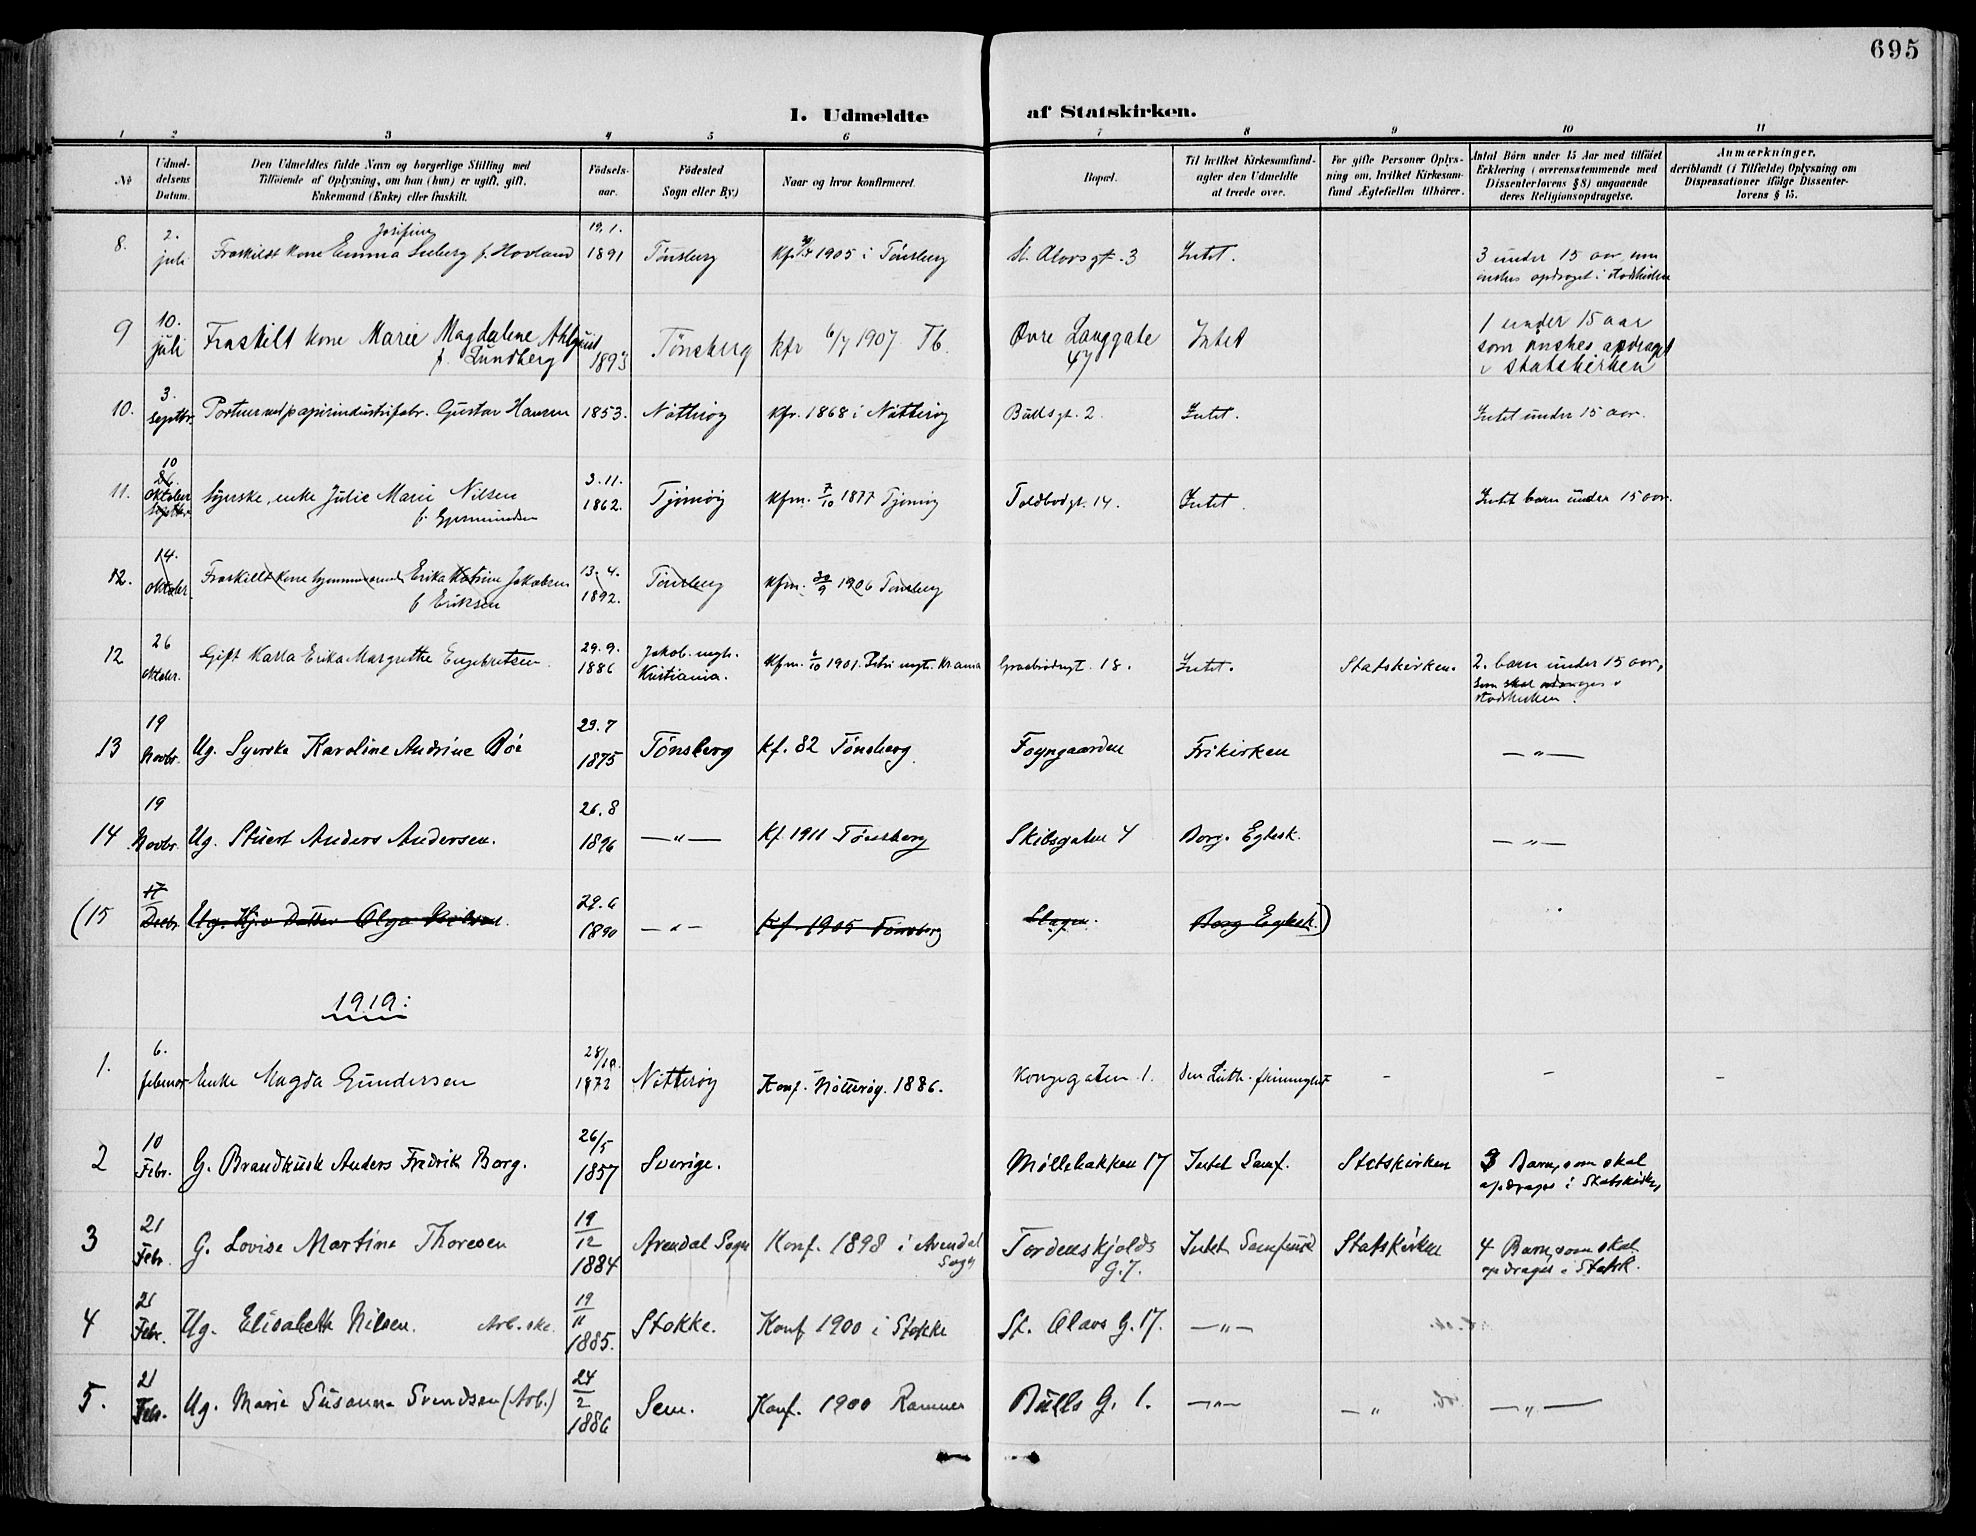 695
I. Udmeldte af Statskirken.
1 2 3 4 5 6 7 8 9 10 11
№
Udmeldelsens Datum.
Den Udmeldtes fulde Navn og borgerlige Stilling med Tilføiende af Oplysning, om han (hun) er ugift, gift, Enkemand (Enke) eller fraskilt.
Fødselsaar.
Fødested Sogn eller By)
Naar og hvor konfirmeret.
Bopæl.
Til hvilket Kirkesamfund agter den Udmeldte at træde over.
For gifte Personer Oplysning om, hvilket Kirkesamfund Ægtefællen tilhører.
Antal Børn under 15 Aar med tilføiet Erklæring (overensstemmende med Dissenterlovens § 8) angaaende deres Religionsopdragelse.
Anmærkninger, deriblandt (i Tilfælde) Oplysning om Dispensationer ifølge Dissenterlovens § 15.
8. 2. juli Fraskildt kone Emma Josefine f. Hovland 19. 1. 1891 Tønsberg kf. 1905 i Tønsberg St. Olavsgt. 3 Intet. 3 under 15 aar, som ønskes opdraget i statskirken
9 10. juli Fraskilt kone Marie Magdalene Ahlquist f. Lundberg 1893 Tönsberg kfr 6/7 1907 Tb. Øvre Langgate 47 Intet 1 under 15 aar som ønskes opdraget i statskirken
10. 3. Septbr. Portner ved papirindustrifabr. Gustav Hansen 1853. Nøtterøy kfr. 1868 i Nøtterøy Bullsgt. 2. Intet. Intet under 15 aar.
11. 10 oktober Syerske, enke Julie Marie Nilsen f. Gjermundsen 3. 11. 1862. Tjømøy kfm. 7/10 1877 Tjømøy Toldbodgt. 14. Intet. Intet barn under 15 aar.
12. 14. oktober. Fraskillt kone hjemmeværende Erika Katrine Jakobsen f Eriksen 13. 4. 1892. Tønsberg kfm. 30/9 1906 Tønsberg
12 26 oktober. Gift Karla Erika Margrethe Engebretsen. 29. 9. 1886 Jakob. mgh. Kristiania. kfm. 1901. Petri mgt. Kr.ania Graabrødregt. 18. Intet. Statskirken. 2. barn under 15 aar, som skal opdrages i statskirken.
13 19 Novbr. Ug. Syerske Karoline Andrine Bøe 29. 7 1875 Tønsberg kf. 82 Tønsberg. Foyngaarden Frikirken — " —
14 19 Novbr. Ug. Stuert Anders Andersen. 26. 8 1896 — " — Kf. 1911 Tønsberg Skibsgaten 4 Borg. Egtesk. — " —
(15 17 Decbr. Ug. Hjv Datter Olga 29. 6 1890 — " — Kf. 1905 Tønsberg Slagen. Borg Egtesk.)
1919:
1. 6. februar Enke Magda Gundersen 28/10. 1872 Nøtterøy Konf. Nøtterøy. 1886. Kongegaten 1. Den Luth. frimenighet - - -
2 10 Febr. G. Brandkusk Anders Fredrik Borg. 26/5 1857 Sverige. Møllebakken 17 Intet Samf. Statskirken 3 Barn, som skal opdrages i Statskirken
3 21 Febr. G. Lovise Martine Thoresen 19/12 1884 Arendal Sogn Konf. 1898 i Arendal Sogn Tordenskjolds G. 7. Intet Samfund Statskirken 4 Barn, som skal opdrages i Statsk.
4 21 Febr. Ug. Elisabeth Nilsen. Arb.ske. 19/11 1885. Stokke. Konf 1900 i Stokke St. Olavs G. 17. — " —
5. 21 Febr. Ug. Marie Susanna Svendsen (Arb.) 24/2 1886 Sem. Konf. 1900 Ramnes Bulls G. 1. — " — — " — — " —